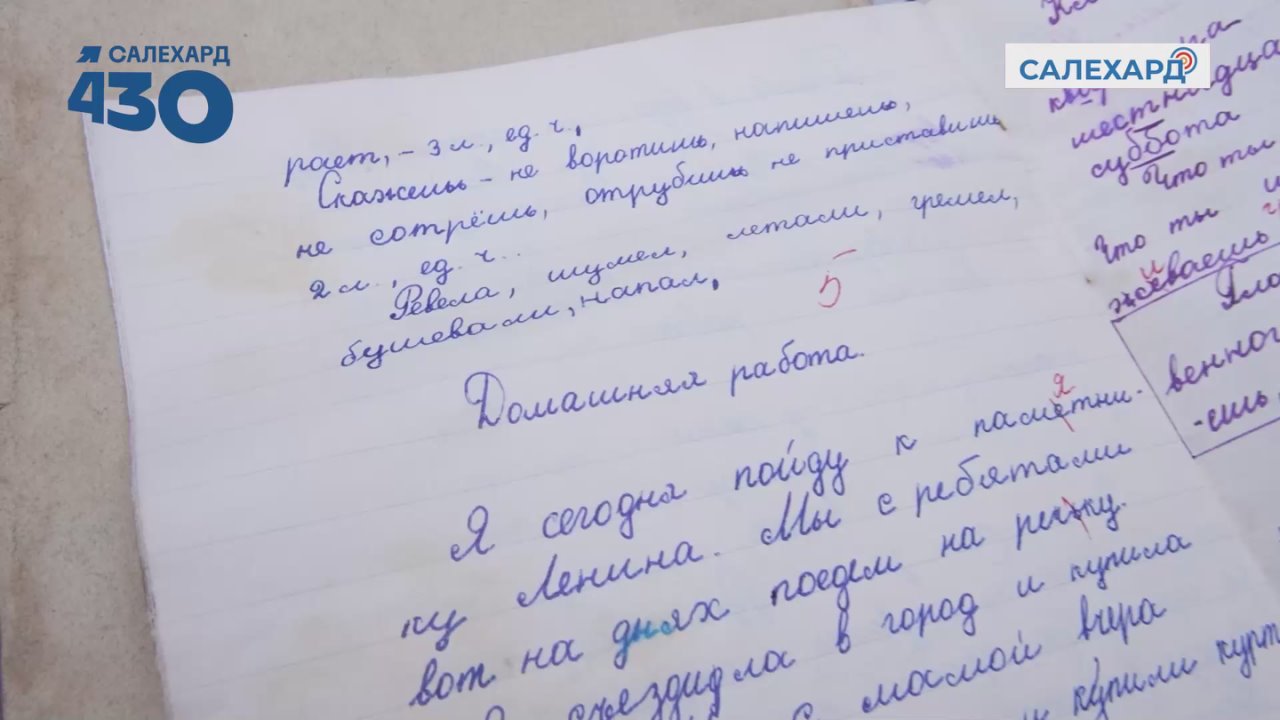 САЛЕХАРД
430
САЛЕХАРД
рает, – 3 л., ед. ч.,
Скажешь – не воротишь, напишешь,
не сотрёшь, отрубишь не приставишь
2 л., ед. ч..
Ревела, шумел, летали, гремел,
бушевали, напал,
5
Домашняя работа.
Я сегодня пойду к паметни-
я
ку Ленина. Мы с ребятами
вот на днях поедем на речьку.
съездила в город и купила
С мамой вчера
купили курт
шестнадца
суббота
Что ты
Что ты
и
жёваешь
венног
-ешь,